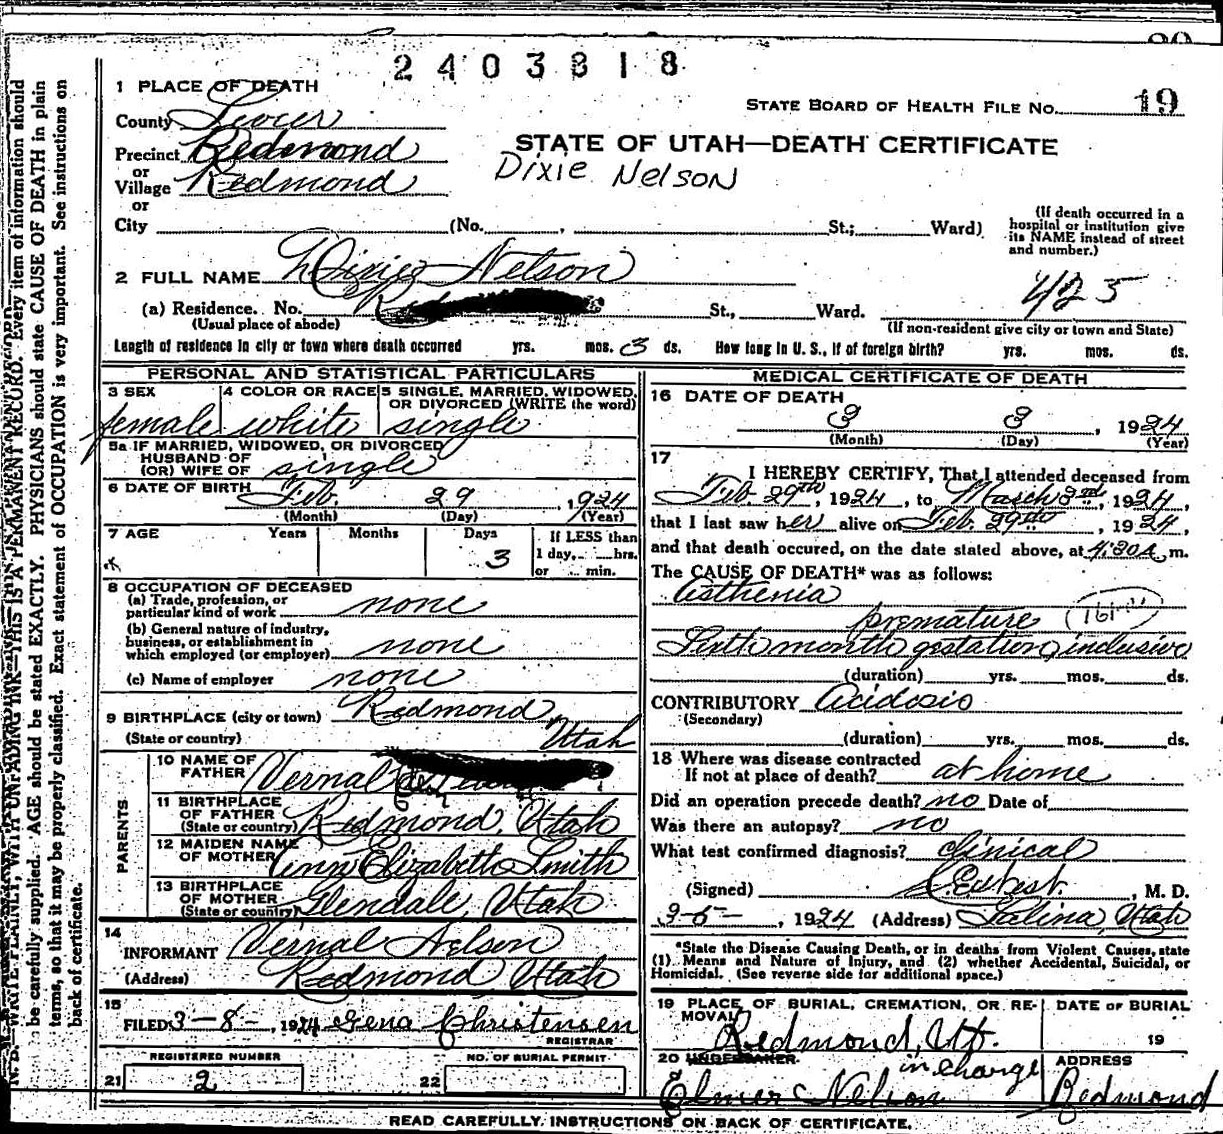 2403818
1 PLACE OF DEATH
STATE BOARD OF HEALTH FILE NO. 19
County Sevier
STATE OF UTAH—DEATH CERTIFICATE
Precinct Redmond
Dixie Nelson
or
Village Redmond
or
City (No. , St.; Ward)
(If death occurred in a
hospital or institution give
its NAME instead of street
and number.)
2 FULL NAME Dixie Nelson
425
(a) Residence. No. St., Ward.
(Usual place of abode)
(If non-resident give city or town and State)
Length of residence in city or town where death occurred yrs. mos. 3 ds. How long in U. S., if of foreign birth? yrs. mos. ds.
PERSONAL AND STATISTICAL PARTICULARS
3 SEX
female
4 COLOR OR RACE
white
5 SINGLE, MARRIED, WIDOWED,
OR DIVORCED (WRITE the word)
single
5a IF MARRIED, WIDOWED, OR DIVORCED
HUSBAND OF
(OR) WIFE OF single
6 DATE OF BIRTH Feb. 29, 1924
(Month) (Day) (Year)
7 AGE Years Months Days If LESS than
3 1 day, hrs.
or min.
8 OCCUPATION OF DECEASED
(a) Trade, profession, or
particular kind of work none
(b) General nature of industry,
business, or establishment in
which employed (or employer) none
(c) Name of employer none
9 BIRTHPLACE (city or town) Redmond
(State or country) Utah
PARENTS
10 NAME OF
FATHER Vernal
11 BIRTHPLACE
OF FATHER
(State or country) Redmond, Utah
12 MAIDEN NAME
OF MOTHER Ann Elizabeth Smith
13 BIRTHPLACE
OF MOTHER
(State or country) Glendale, Utah
14
INFORMANT Vernal Nelson
(Address) Redmond Utah
15
FILED 3-8-, 1924 Gena Christensen
REGISTRAR
REGISTERED NUMBER NO. OF BURIAL PERMIT
21 2 22
MEDICAL CERTIFICATE OF DEATH
16 DATE OF DEATH
3 3, 1924
(Month) (Day) (Year)
17
I HEREBY CERTIFY, That I attended deceased from
Feb. 29th, 1924, to March 3rd, 1924,
that I last saw her alive on Feb. 29th, 1924,
and that death occured, on the date stated above, at 4:30A m.
The CAUSE OF DEATH* was as follows:
Asthenia
premature
Sixth month gestation, inclusive
(duration) yrs. mos. ds.
CONTRIBUTORY Acidosis
(Secondary)
(duration) yrs. mos. ds.
18 Where was disease contracted
If not at place of death? at home
Did an operation precede death? no Date of
Was there an autopsy? no
What test confirmed diagnosis? Clinical
(Signed) , M. D.
3-5-, 1924 (Address) Salina, Utah
*State the Disease Causing Death, or in deaths from Violent Causes, state
(1) Means and Nature of Injury, and (2) whether Accidental, Suicidal, or
Homicidal. (See reverse side for additional space.)
19 PLACE OF BURIAL, CREMATION, OR RE-
MOVAL
Redmond, Ut.
DATE OF BURIAL
19
20 UNDERTAKER in charge
Elmer Nelson
ADDRESS
Redmond
READ CAREFULLY INSTRUCTIONS ON BACK OF CERTIFICATE.
WRITE PLAINLY, WITH UNFADING INK—THIS IS A PERMANENT RECORD. Every item of information should
be carefully supplied. AGE should be stated EXACTLY. PHYSICIANS should state CAUSE OF DEATH in plain
terms, so that it may be properly classified. Exact statement of OCCUPATION is very important. See instructions on
back of certificate.